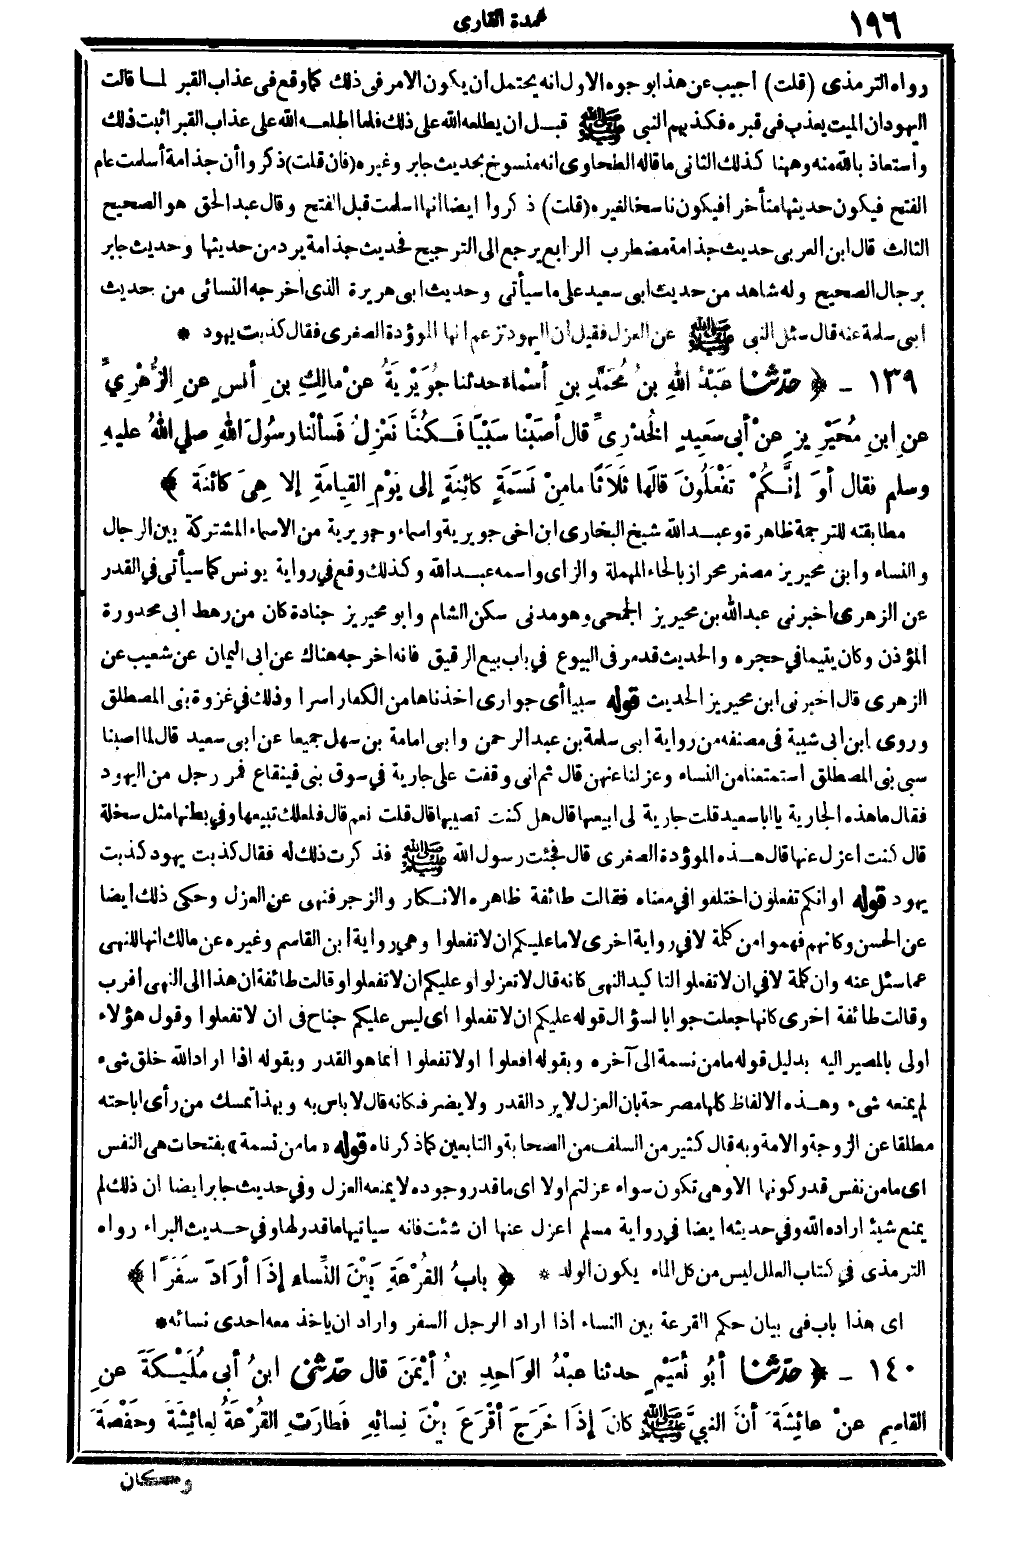 ١٩٦
عمدة القارى
رواه الترمذى (قلت) أجيب عن هذا بوجوه الاول انه يحتمل أن يكون الامر فى ذلك كما وقع فى عذاب القبر لما قالت
اليهود ان الميت يعذب فى قبره فكذبهم النبى ﷺ قبل ان يطلعه الله على ذلك فلما اطلعه الله على عذاب القبر اثبت ذلك
واستعاذ بالله منه وههنا كذلك الثانى ما قاله الطحاوى انه منسوخ بحديث جابر وغيره (فان قلت) ذكروا أن جذامة أسلمت عام
الفتح فيكون حديثها متأخرا فيكون ناسخا لغيره (قلت) ذكروا ايضا انها اسلمت قبل الفتح وقال عبد الحق هو الصحيح
الثالث قال ابن العربى حديث جذامة مضطرب الرابع يرجع الى الترجيح فحديث جذامة يرد من حديثها وحديث جابر
برجال الصحيح وله شاهد من حديث ابى سعيد على ما سيأتى وحديث ابى هريرة الذى اخرجه النسائى من حديث
ابى سلمة عنه قال سئل النبى ﷺ عن العزل فقيل ان اليهود تزعم انها الموؤدة الصغرى فقال كذبت يهود *
١٣٩ ـ ﴿ حَدَّثنا عَبْدُ اللهِ بنُ مُحَمَّدِ بنِ أسْماءَ حدثنا جُوَيْرِيَةُ عنْ مالِكِ بنِ أنَسٍ عنِ الزُّهْرِيِّ
عنِ ابنِ مُحَيْرِيزٍ عنْ أبى سَعِيدٍ الخُدْرِىِّ قال أصَبْنا سَبْيًا فَكُنَّا نَعْزِلُ فَسألْنا رسُولَ اللهِ صلي اللهُ عليهِ
وسلم فقال أوَ إنَّكُمْ تَفْعَلُونَ قالَها ثَلَاثًا ما مِنْ نَسَمَةٍ كائِنَةٍ إلى يَوْمِ القِيامَةِ إلا هِىَ كائنَةٌ ﴾
مطابقته للترجمة ظاهرة وعبد الله شيخ البخارى ابن اخى جويرية واسماء وجويرية من الاسماء المشتركة بين الرجال
والنساء وابن محيريز مصغر محراز بالحاء المهملة والزاى واسمه عبد الله وكذلك وقع في رواية يونس كما سيأتى في القدر
عن الزهرى اخبرنى عبد الله بن محيريز الجمحى وهو مدنى سكن الشام وابو محيريز جنادة كان من رهط ابى محذورة
المؤذن وكان يتيما في حجره والحديث قد مر فى البيوع في باب بيع الرقيق فانه اخرجه هناك عن ابى اليمان عن شعيب عن
الزهرى قال اخبرنى ابن محيريز الحديث قوله سبيا أى جوارى اخذناها من الكفار اسرا وذلك في غزوة بنى المصطلق
وروى ابن ابى شيبة فى مصنفه من رواية ابى سلمة بن عبد الرحمن وابى امامة بن سهل جميعا عن ابى سعيد قال لما اصبنا
سبى بنى المصطلق استمتعنا من النساء وعزلنا عنهن قال ثم انى وقفت على جارية في سوق بنى قينقاع فمر رجل من اليهود
فقال ما هذه الجارية يا ابا سعيد قلت جارية لى ابيعها قال هل كنت تصيبها قال قلت نعم قال فلعلك تبيعها وفي بطنها مثل سخلة
قال كنت أعزل عنها قال هذه الموؤدة الصغرى قال فجئت رسول الله ﷺ فذكرت ذلك له فقال كذبت يهود كذبت
يهود قوله اوانكم تفعلون اختلفوا في معناه فقالت طائفة ظاهره الانكار والزجر فنهى عن العزل وحكى ذلك أيضا
عن الحسن وكانهم فهموا من كلمة لا في رواية اخرى لا ما عليكم ان لا تفعلوا وهي رواية ابن القاسم وغيره عن مالك انها للنهى
عما سئل عنه وان كلمة لا في ان لا تفعلوا لتاكيد النهى كانه قال لا تعزلوا وعليكم ان لا تفعلوا وقالت طائفة ان هذا الى النهى أقرب
وقالت طائفة اخرى كانها جعلت جوابا لسؤال قوله عليكم ان لا تفعلوا اى ليس عليكم جناح فى ان لا تفعلوا وقول هؤلاء
اولى بالمصير اليه بدليل قوله ما من نسمة الى آخره وبقوله افعلوا اولا تفعلوا انما هو القدر وبقوله اذا اراد الله خلق شىء
لم يمنعه شىء وهذه الالفاظ كلها مصرحة بان العزل لا يرد القدر ولا يضر فكانه قال لا باس به وبهذا تمسك من رأى اباحته
مطلقا عن الزوجة والامة وبه قال كثير من السلف من الصحابة والتابعين كما ذكرناه قوله «ما من نسمة» بفتحات هى النفس
اى ما من نفس قدر كونها الا وهى تكون سواء عزلتم اولا اى ما قدر وجوده لا يمنعه العزل وفي حديث جابر ايضا ان ذلك لم
يمنع شيئا اراده الله وفي حديثه ايضا في رواية مسلم اعزل عنها ان شئت فانه سياتيها ما قدر لها وفي حديث البراء رواه
الترمذى في كتاب العلل ليس من كل الماء يكون الولد * ﴿ بابُ القُرْعَةِ بَيْنَ النِّساءِ إذَا أرَادَ سَفَرًا ﴾
اى هذا باب فى بيان حكم القرعة بين النساء اذا اراد الرجل السفر واراد ان ياخذ معه احدى نسائه *
١٤٠ ـ ﴿ حَدَّثنا أبُو نُعَيْمٍ حدثنا عبْدُ الوَاحِدِ بنُ أيْمَنَ قال حَدَّثنى ابنُ أبى مُلَيْكَةَ عنِ
القاسِمِ عنْ عائِشَةَ أنَّ النبيَّ ﷺ كانَ إذَا خَرَجَ أقْرَعَ بيْنَ نِسائِهِ فَطارَتِ القُرْعَةُ لِعائِشَةَ وحَفْصَةَ
وكان